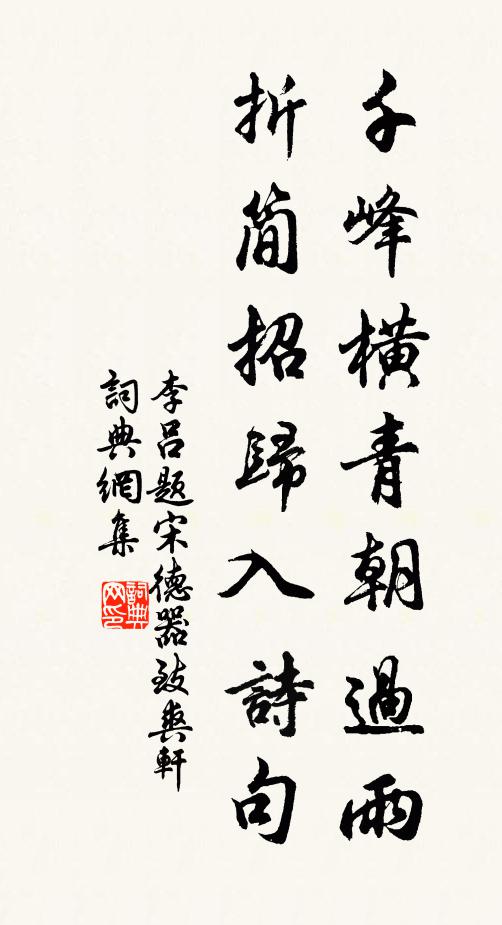 千峰橫青朝過雨
折簡招歸入詩句
李呂題宋德器致爽軒
詞典網集
詞典网印